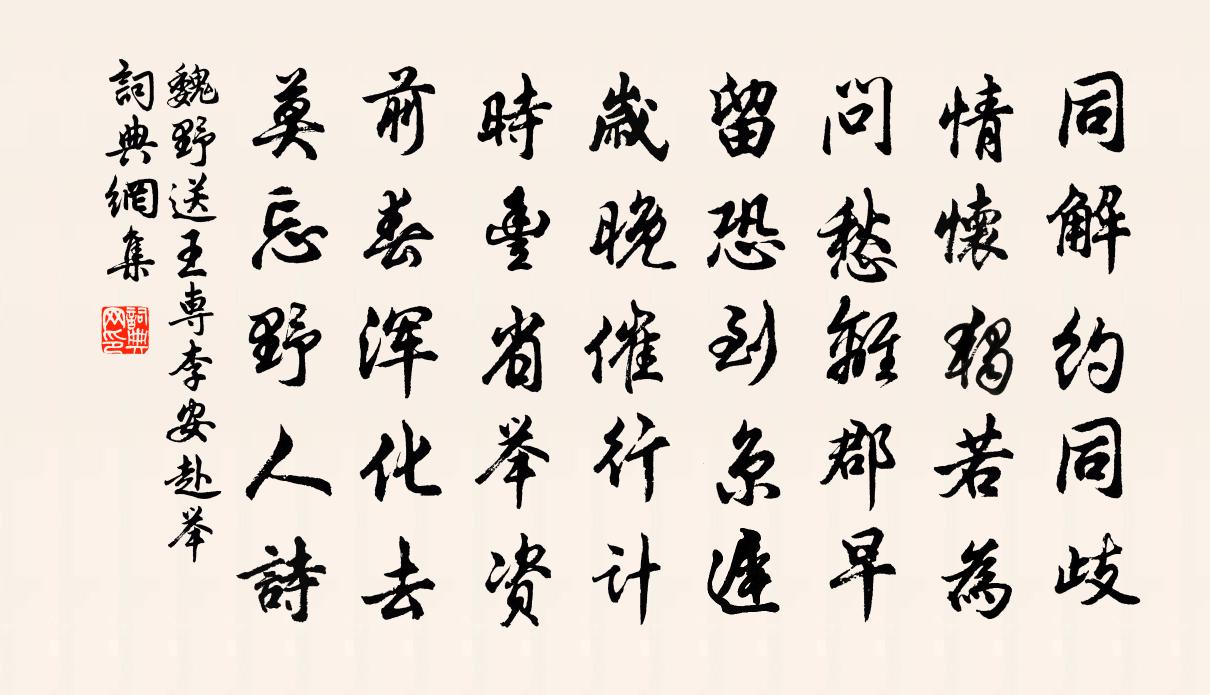 同解约同歧
情懷獨若為
問愁離郡早
留恐到京遲
歲晚催行计
時豊省举资
前春浑化去
莫忘野人詩
魏野送王専李安赴举
詞典網集
詞典网印